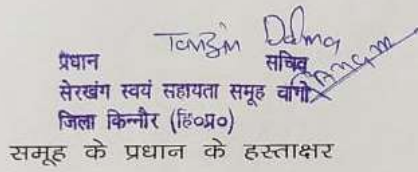 Tanzin Dolma
प्रधान सचिव
सेरखंग स्वयं सहायता समूह चांगो
जिला किन्नौर (हि०प्र०)
समूह के प्रधान के हस्ताक्षर